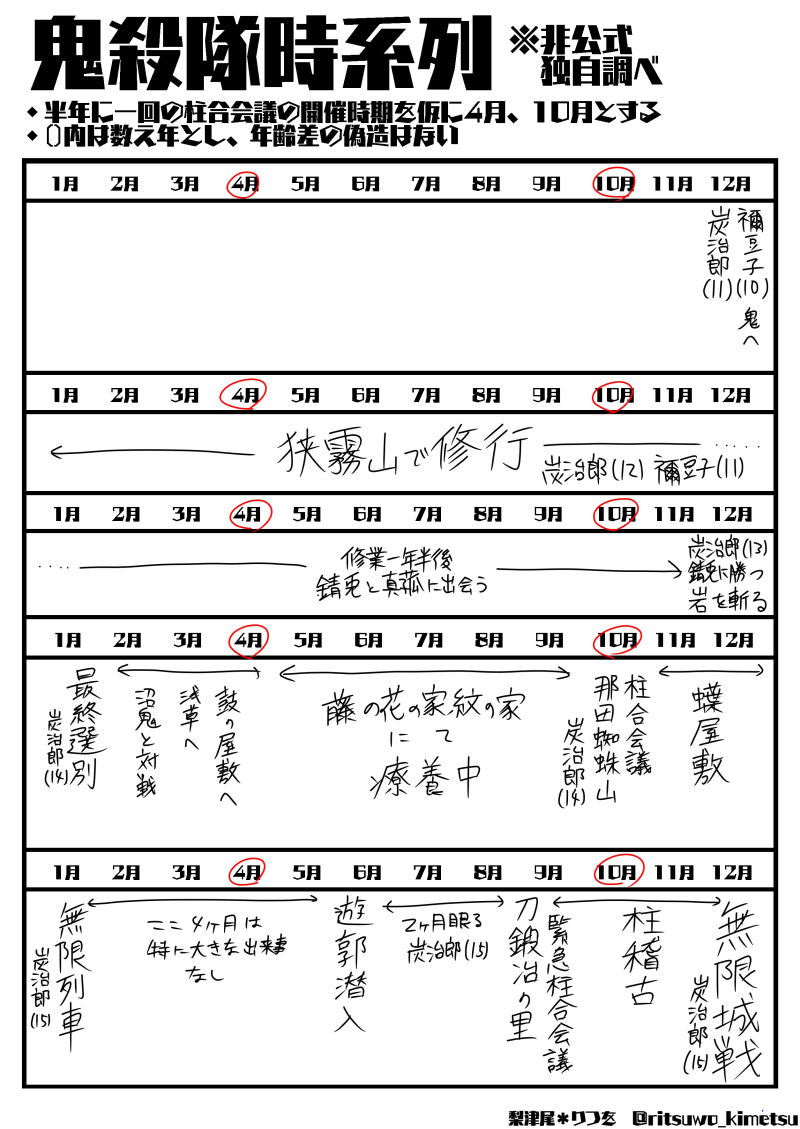 鬼殺隊時系列
※非公式
独自調べ
◆半年に一回の柱合会議の開催時期を仮に4月、10月とする
◆()内は数え年とし、年齢差の偽造はない
1月 2月 3月 4月 5月 6月 7月 8月 9月 10月 11月 12月
禰豆子(10) 鬼へ
炭治郎(11)
1月 2月 3月 4月 5月 6月 7月 8月 9月 10月 11月 12月
狭霧山で修行
炭治郎(12) 禰豆子(11)
1月 2月 3月 4月 5月 6月 7月 8月 9月 10月 11月 12月
修業一年半後
錆兎と真菰に出会う
炭治郎(13)
錆兎に勝つ
岩を斬る
1月 2月 3月 4月 5月 6月 7月 8月 9月 10月 11月 12月
最終選別
炭治郎(14)
沼鬼と対戦
浅草へ
鼓の屋敷へ
藤の花の家紋の家
にて
療養中
柱合会議
那田蜘蛛山
炭治郎(14)
蝶屋敷
1月 2月 3月 4月 5月 6月 7月 8月 9月 10月 11月 12月
無限列車
炭治郎(15)
ここ4ヶ月は
特に大きな出来事
なし
遊郭潜入
2ヶ月眠る
炭治郎(15)
刀鍛冶の里
緊急柱合会議
柱稽古
無限城戦
炭治郎(15)
梨津尾*りつを @ritsuwo_kimetsu